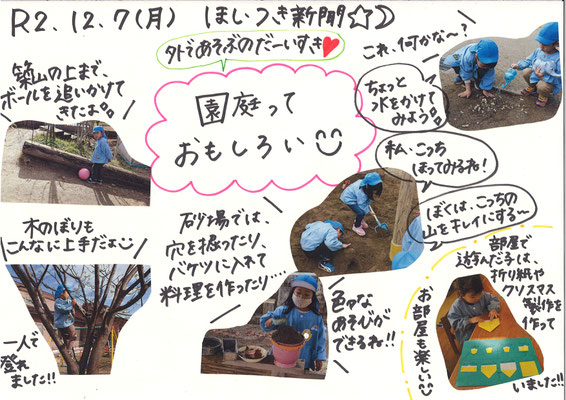 R2.12.7(月) ほし・つき新聞☆☽
外であそぶのだーいすき♥
園庭って
おもしろい
これ、何かな〜?
ちょっと
水をかけて
みよう
私、こっち
ほってみるね!
ぼくは、こっちの
山をキレイにする〜
築山の上まで、
ボールを追いかけて
きたよ。
木のぼりも
こんなに上手だよ
一人で
登れ
ました!!
砂場では、
穴を掘ったり、
バケツに入れて
料理を作ったり…
色々な
あそびが
できるね!!
部屋で
遊んだ子は、
折り紙や
クリスマス
製作を
作って
いました!!
お部屋も楽しい